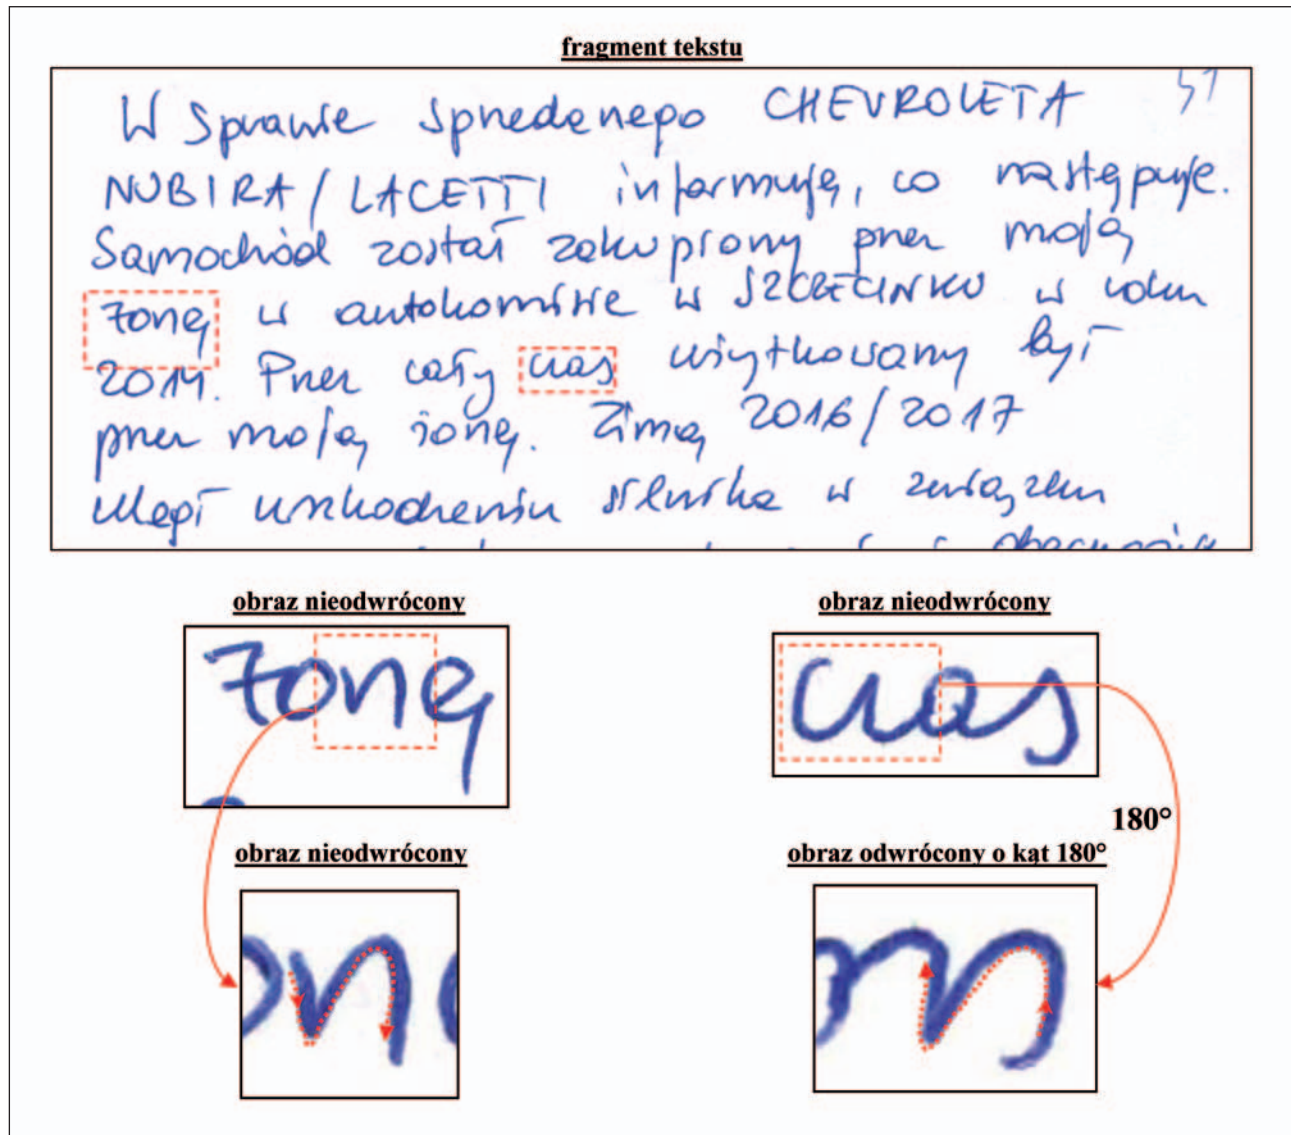 fragment tekstu
W sprawie sprzedanego CHEVROLETA 51
NUBIRA/LACETTI informuję, co następuje.
Samochód został zakupiony przez moją
żonę w autokomisie w SZCZECINKU w roku
2014. Przez cały czas użytkowany był
przez moją żonę. Zimą 2016/2017
uległ uszkodzeniu silnika w związku
obraz nieodwrócony
obraz nieodwrócony
żonę
czas
180°
obraz nieodwrócony
obraz odwrócony o kąt 180°
on